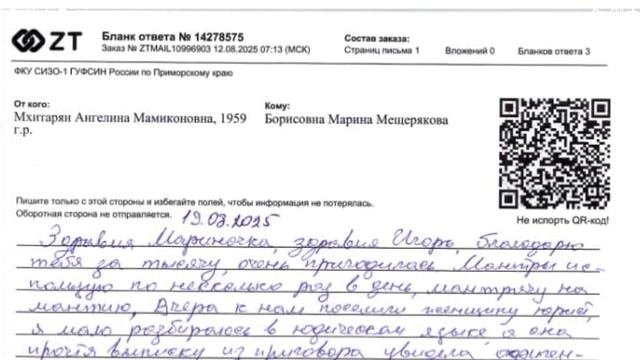 ZT
Бланк ответа № 14278575
Заказ № ZTMAIL10996903 12.08.2025 07:13 (МСК)
Состав заказа:
Страниц письма 1 Вложений 0 Бланков ответа 3
ФКУ СИЗО-1 ГУФСИН России по Приморскому краю
От кого:
Мхитарян Ангелина Мамиконовна, 1959
г.р.
Кому:
Борисовна Марина Мещерякова
Пишите только с этой стороны и избегайте полей, чтобы информация не потерялась.
Оборотная сторона не отправляется.
19.08.2025
Не испорть QR-код!
Здравия Мариночка, здравия Игорь, благодарю
тебя за тысячу, очень пригодилась. Мантры ис-
пользую по несколько раз в день, мантрячу на
мантию, Вчера к нам поселили женщину юрист,
я мало разбираюсь в юдическом языке, а она
прочтя выписку из приговора увидела